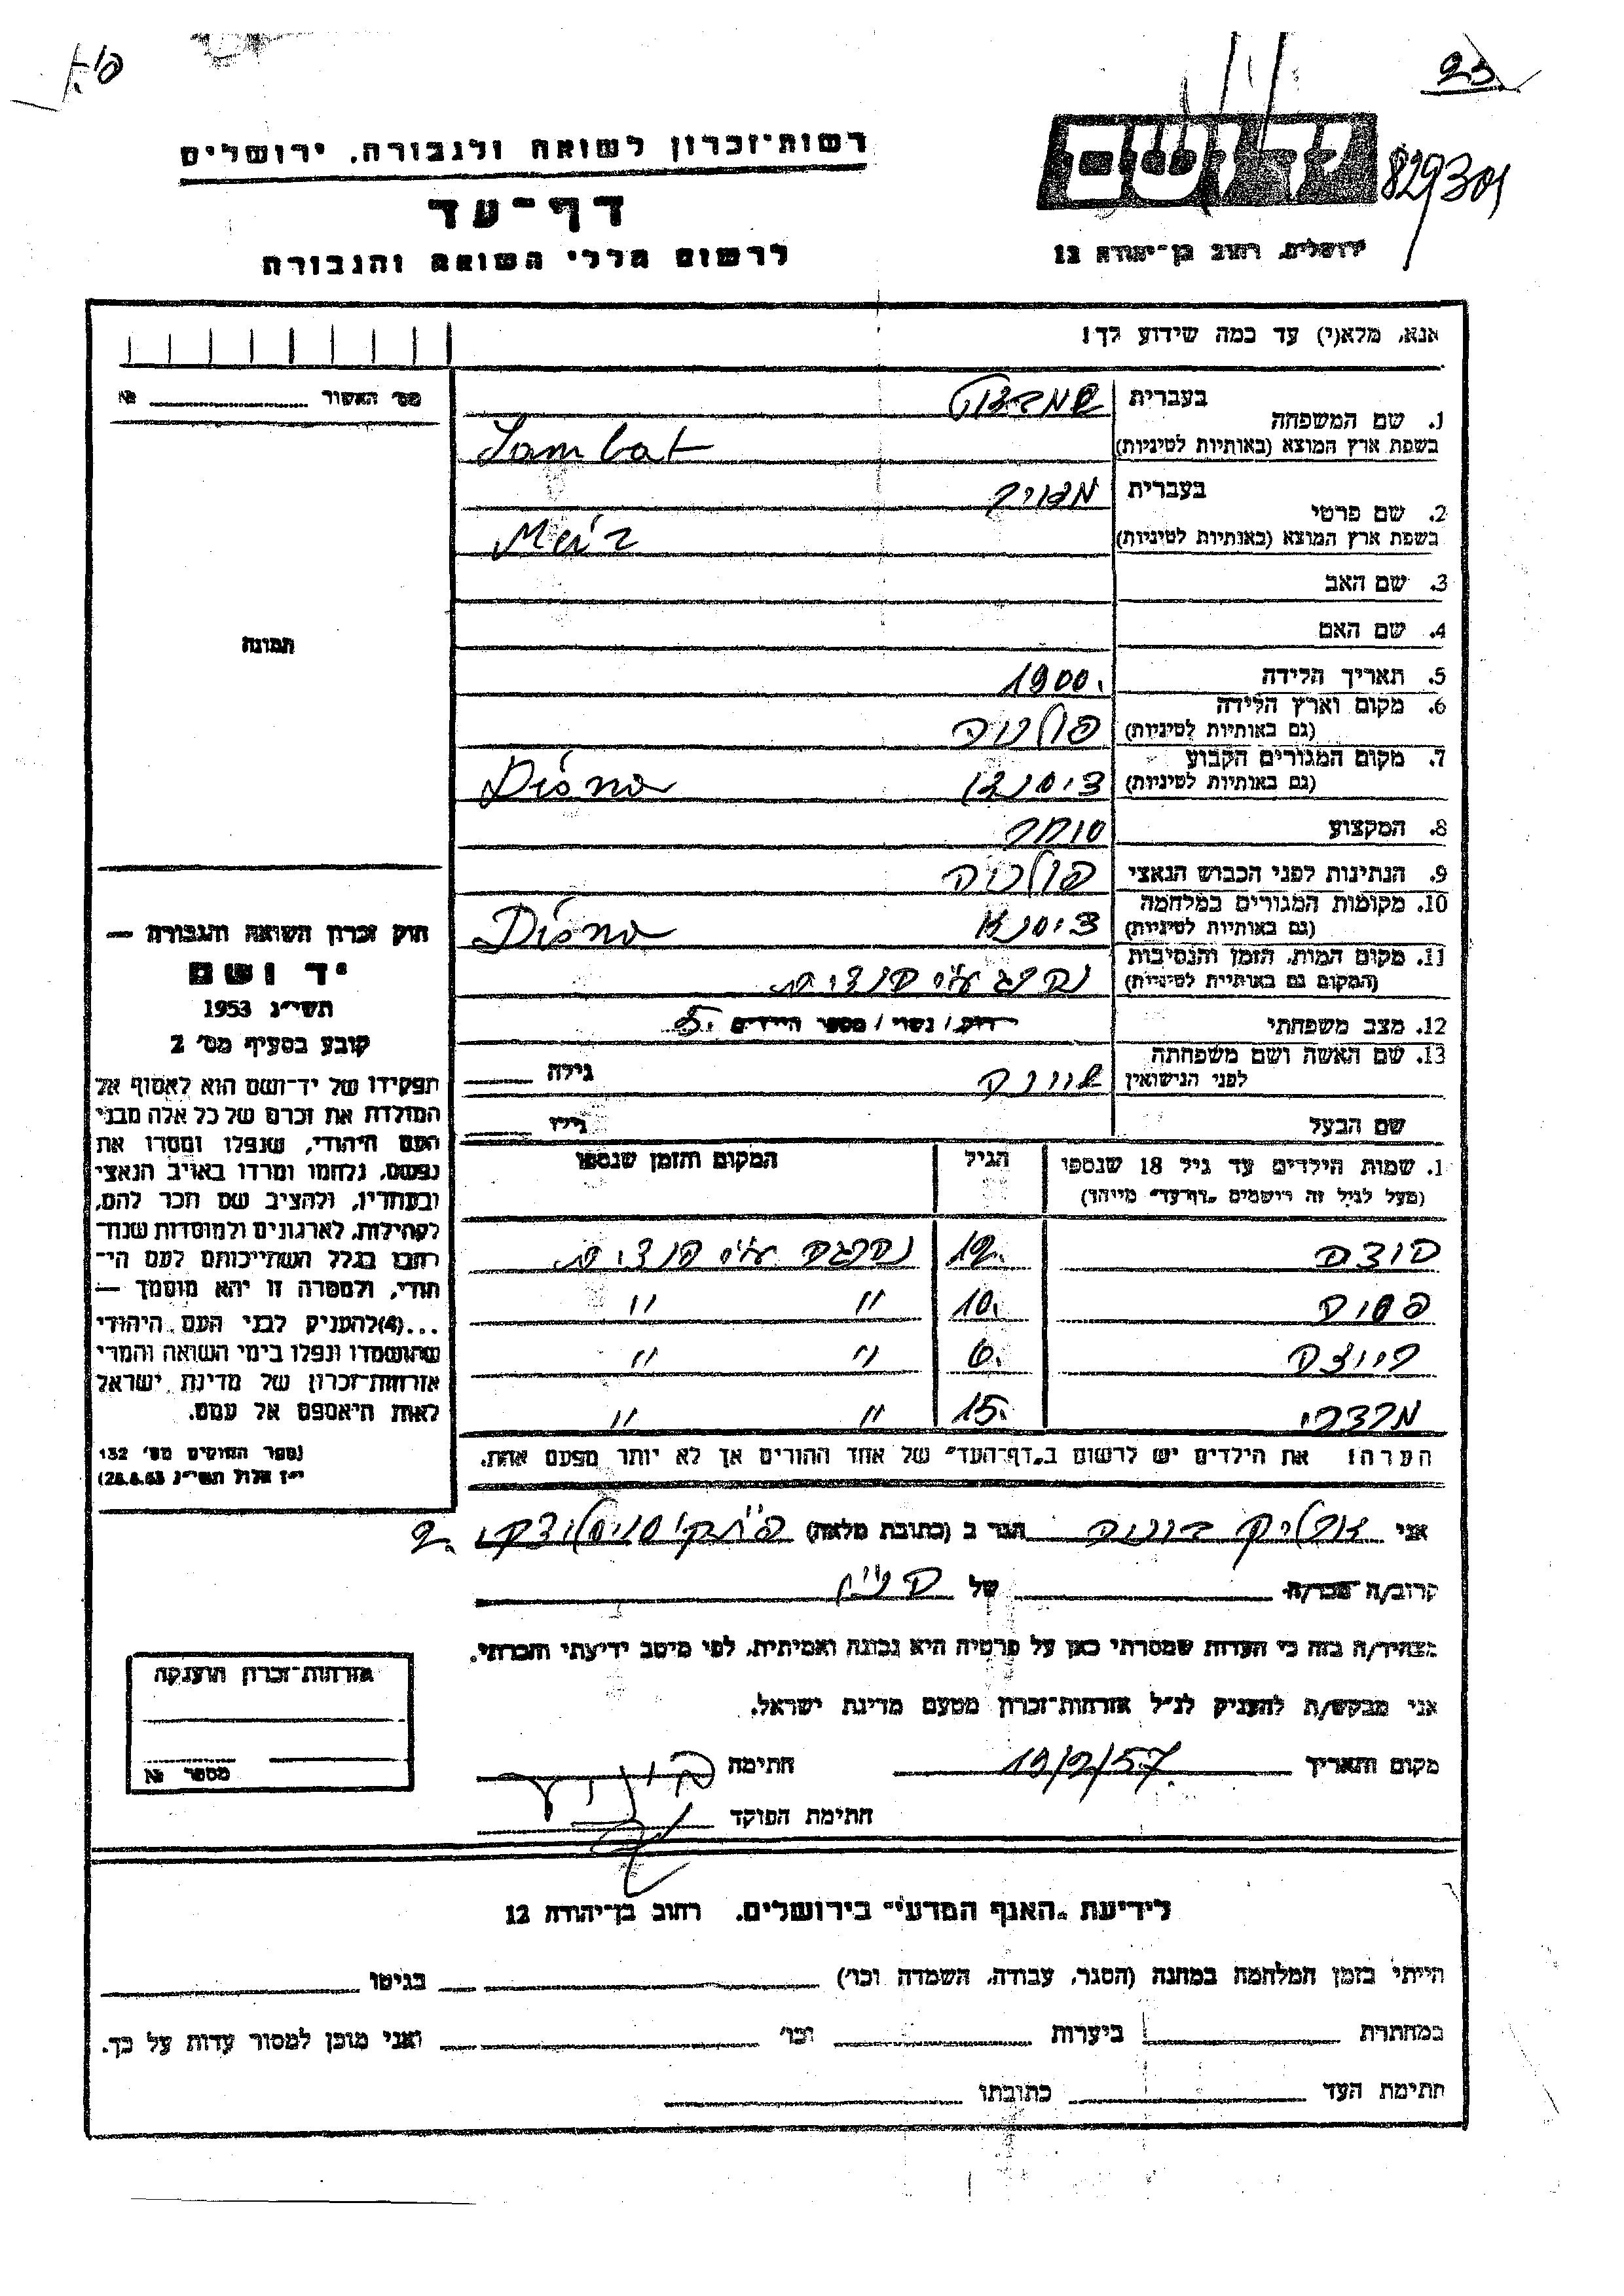 23
829301
יד ושם
ירושלים, רחוב בן־יהודה 12
רשות־זכרון לשואה ולגבורה, ירושלים
דף־עד
לרשום חללי השואה והגבורה
אנא, מלא(י) עד כמה שידוע לך!
מס' האשור № 
1. שם המשפחה
בעברית
בשפת ארץ המוצא (באותיות לטיניות) Sambat
2. שם פרטי
בעברית מאיר
בשפת ארץ המוצא (באותיות לטיניות)
3. שם האב
4. שם האם
5. תאריך הלידה 1900.
6. מקום וארץ הלידה פולניה
(גם באותיות לטיניות)
7. מקום המגורים הקבוע
(גם באותיות לטיניות) דיסנה Disna
8. המקצוע סוחר
9. הנתינות לפני הכבוש הנאצי פולניה
10. מקומות המגורים במלחמה
(גם באותיות לטיניות) דיסנה Disna
11. מקום המות, הזמן והנסיבות
(המקום גם באותיות לטיניות) נהרג ע"י
12. מצב משפחתי רווק / נשוי / מספר הילדים 5.
13. שם האשה ושם משפחתה
לפני הנישואין גילה
שם הבעל גילו
תמונה
חוק זכרון השואה והגבורה —
יד ושם
תשי"ג 1953
קובע בסעיף מס' 2
תפקידו של יד־ושם הוא לאסוף אל
המולדת את זכרם של כל אלה מבני
העם היהודי, שנפלו ומסרו את
נפשם, נלחמו ומרדו באויב הנאצי
ובעוזריו, ולהציב שם וזכר להם,
לקהילות, לארגונים ולמוסדות שנח־
רבו בגלל השתייכותם לעם הי־
הודי, ולמטרה זו יהא מוסמך —
...(4) להעניק לבני העם היהודי
שהושמדו ונפלו בימי השואה והמרי
אזרחות־זכרון של מדינת ישראל
לאות היאספם אל עמם.
(ספר החוקים מס' 132
י"ז אלול תשי"ג 28.8.53)
1. שמות הילדים עד גיל 18 שנספו
(מעל לגיל זה רושמים „דף־עד” מיוחד)
הגיל
המקום והזמן שנספו
12. נהרגה ע"י
10. " "
6. " "
מרדכי 15. " "
הערה! את הילדים יש לרשום ב„דף־העד” של אחד ההורים אך לא יותר מפעם אחת.
אני הגר ב (כתובת מלאה) 2.
קרוב/ה מכר/ה של
מצהיר/ה בזה כי העדות שמסרתי כאן על פרטיה היא נכונה ואמיתית, לפי מיטב ידיעתי והכרתי.
אני מבקש/ת להעניק לנ"ל אזרחות־זכרון מטעם מדינת ישראל.
מקום ותאריך 19/2/57. חתימה
חתימת הפוקד
אזרחות־זכרון הוענקה
מספר №
לידיעת „האגף המדעי” בירושלים, רחוב בן־יהודה 12
הייתי בזמן המלחמה במחנה (הסגר, עבודה, השמדה וכו') בגיטו
במחתרת ביערות וכו' ואני מוכן למסור עדות על כך.
חתימת העד כתובתו